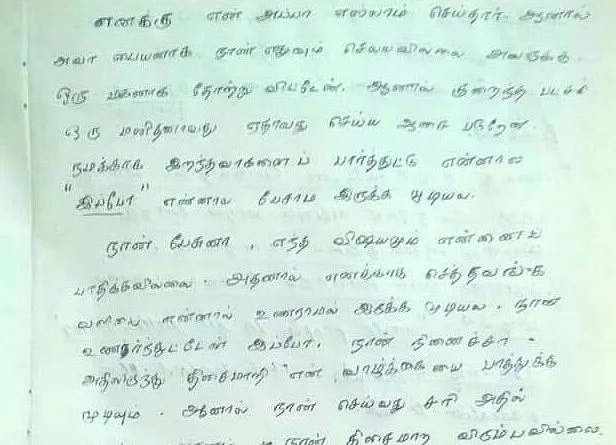 எனக்கு என் அய்யா எல்லாம் செய்தார். ஆனால்
அவர் பையனாக நான் எதுவும் செய்யவில்லை அவருக்கு.
ஒரு மகனாக தோற்று விட்டேன். ஆனால் குறைந்த பட்சம்
ஒரு மனிதனாவது ஏதாவது செய்ய ஆசை படுறேன்.
நமக்காக இறந்தவர்களைப் பார்த்துட்டு என்னால
"இப்போ" என்னால பேசாம இருக்க முடியல.
நான் பேசுனா, எந்த விஷயமும் என்னைப்
பாதிக்கவில்லை. அதனால் எனக்காக செத்தவங்க
வலியை என்னால் உணராமல் இருக்க முடியல. நான்
உணர்ந்துட்டேன் இப்போ. நான் நினைச்சா
அதிலிருந்து 'திசைமாறி' என் வாழ்க்கையை பாத்துக்க
முடியும். ஆனால் நான் செய்வது சரி அதில்
நான் திசைமாற விரும்பவில்லை.